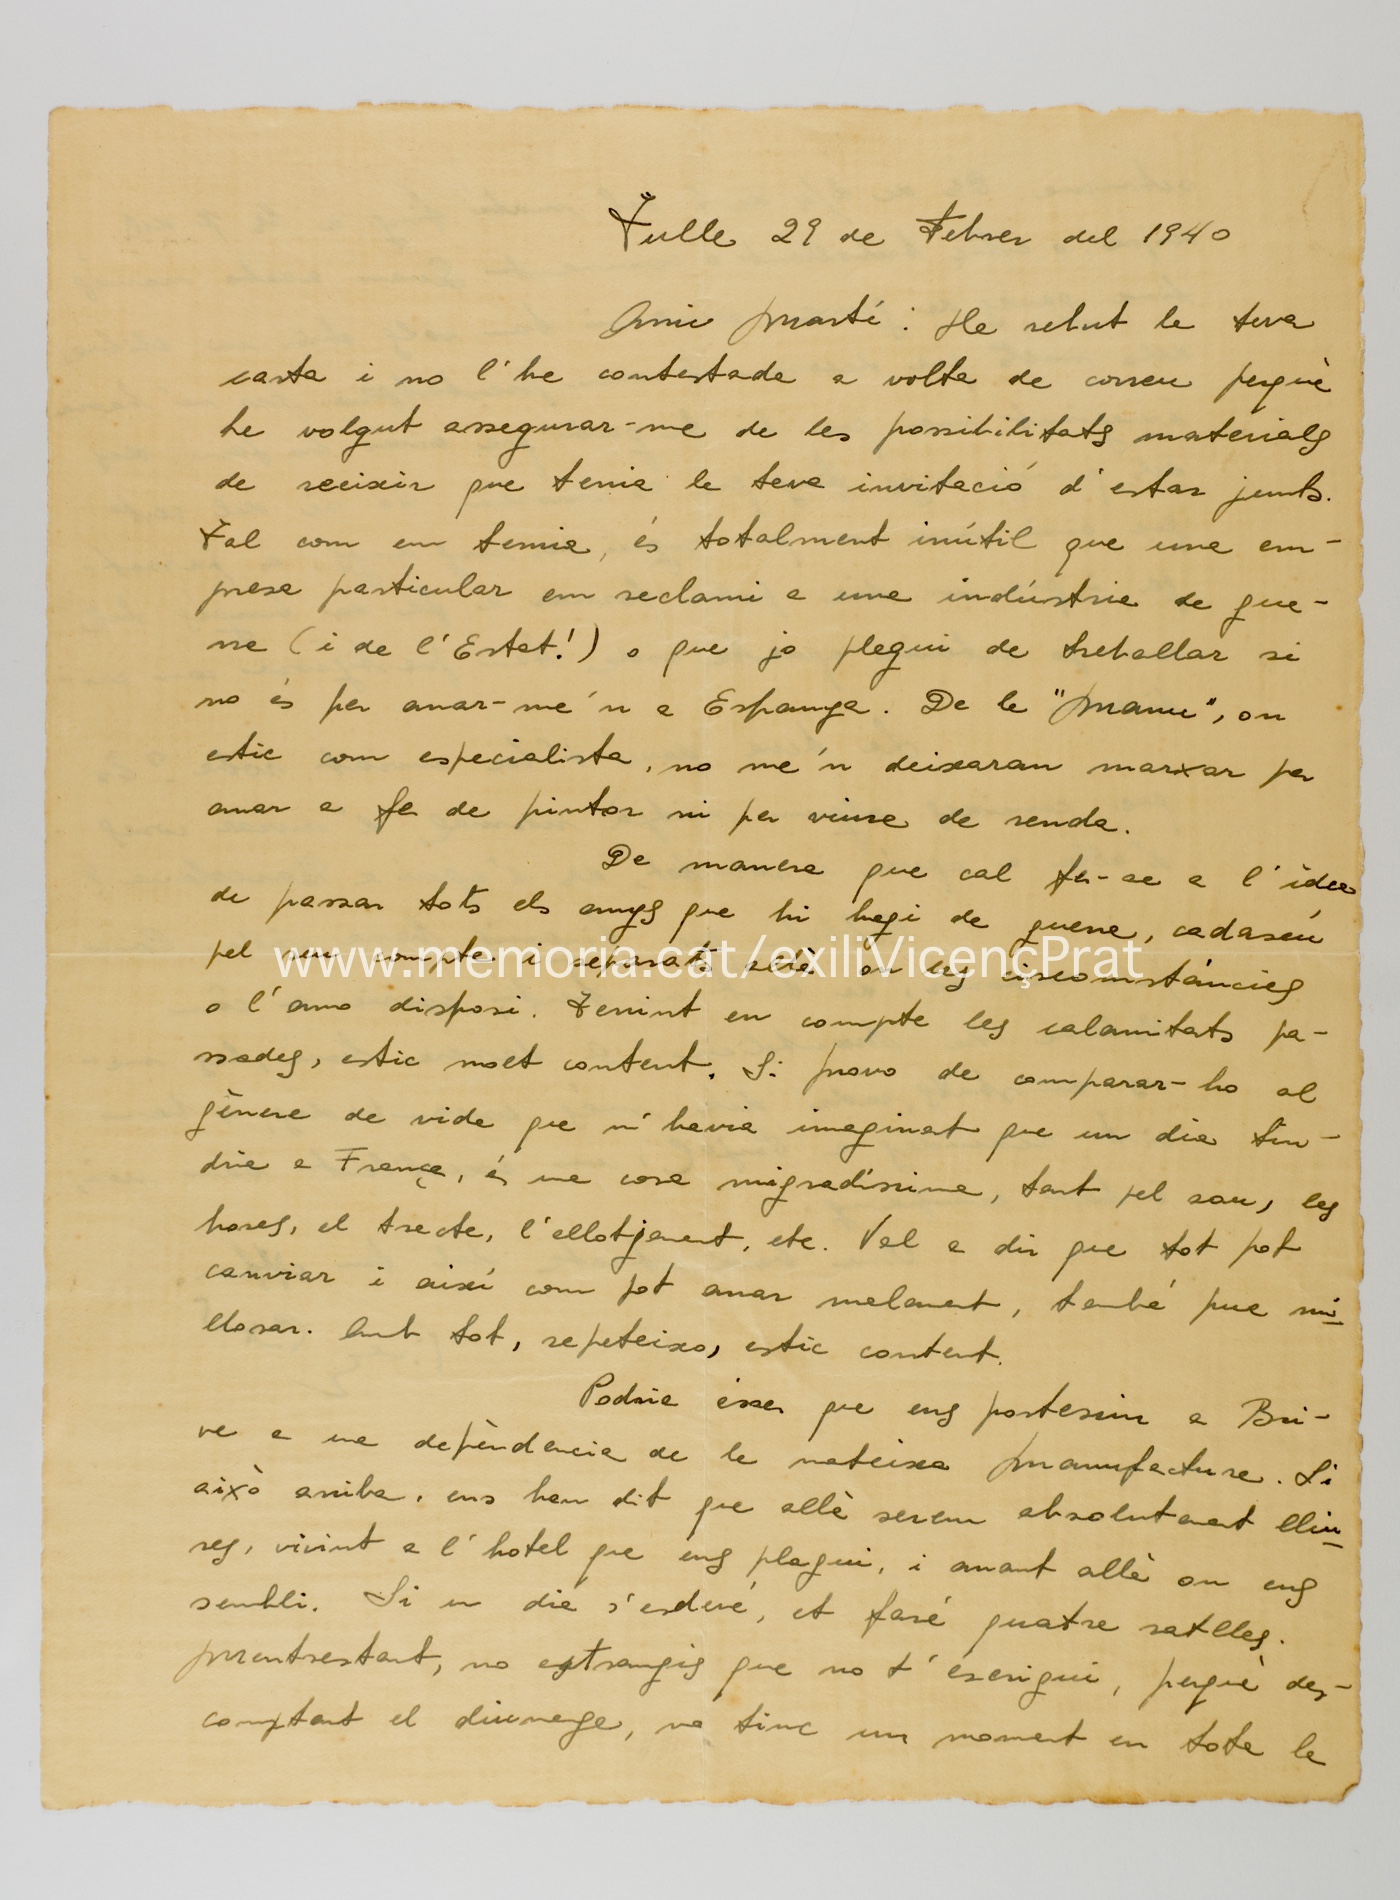 Tulle 29 de Febrer del 1940
Amic Martí: He rebut la teva
carta i no l'he contestada a volta de correu perquè
he volgut assegurar-me de les possibilitats materials
de reeixir que tenia la teva invitació d'estar junts.
Tal com em temia, és totalment inútil que una em-
presa particular em reclami a una indústria de gue-
rra (i de l'Estat!) o que jo plegui de treballar si
no és per anar-me'n a Espanya. De la "Manu", on
estic com especialista, no me'n deixaran marxar per
anar a fer de pintor ni per viure de renda.
De manera que cal fer-se a l'idea
de passar tots els anys que hi hagi de guerra, cadascú
pel seu compte i separats allà on les circomstàncies
o l'amo disposi. Tenint en compte les calamitats pa-
ssades, estic molt content. Si provo de comparar-ho al
gènere de vida que m'havia imaginat que un dia tin-
dria a França, és una cosa migradíssima, tant pel sou, les
hores, el tracte, l'allotjament, etc. Val a dir que tot pot
canviar i així com pot anar malament, també pue mi-
llorar. Amb tot, repeteixo, estic content.
Podria ésser que ens portessim a Bri-
ve a una depèndencia de la mateixa Manufactura. Si
això arriba, ens han dit que allà serem absolutament lliu-
res, vivint a l'hotel que ens plagui, i anant allà on ens
sembli. Si un dia s'esdevé, et faré quatre ratlles.
Mentrestant, no extrangis que no t'escrigui, perquè des-
comptant el diumenge, no tinc un moment en tota la
www.memoria.cat/exiliVicençPrat